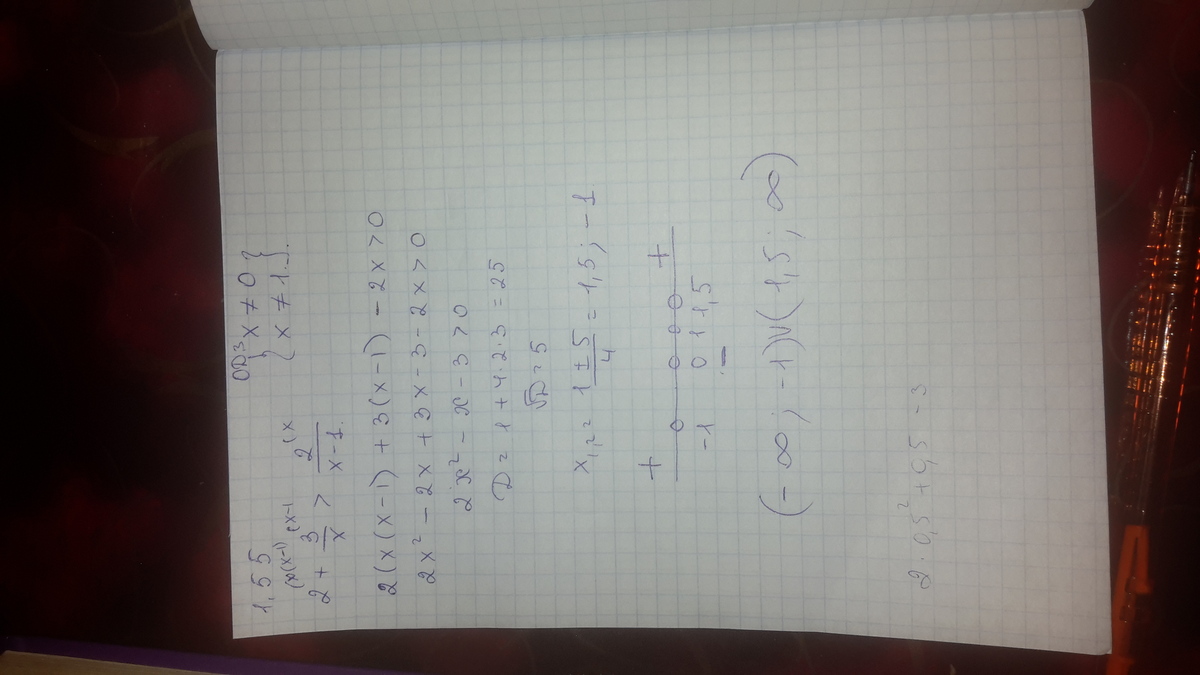 1,55
ОДЗ { x ≠ 0 }
{ x ≠ 1. }
(x(x-1) (x-1 (x
2 + 3/x > 2/(x-1).
2(x(x-1)+3(x-1)-2x>0
2x²-2x+3x-3-2x>0
2x²-x-3>0
D=1+4·2·3=25
√D=5
x₁,₂= (1±5)/4 =1,5; -1
+ +
-1 0 1 1,5
-
(-∞; -1)∪(1,5; ∞)
2·0,5²+0,5-3